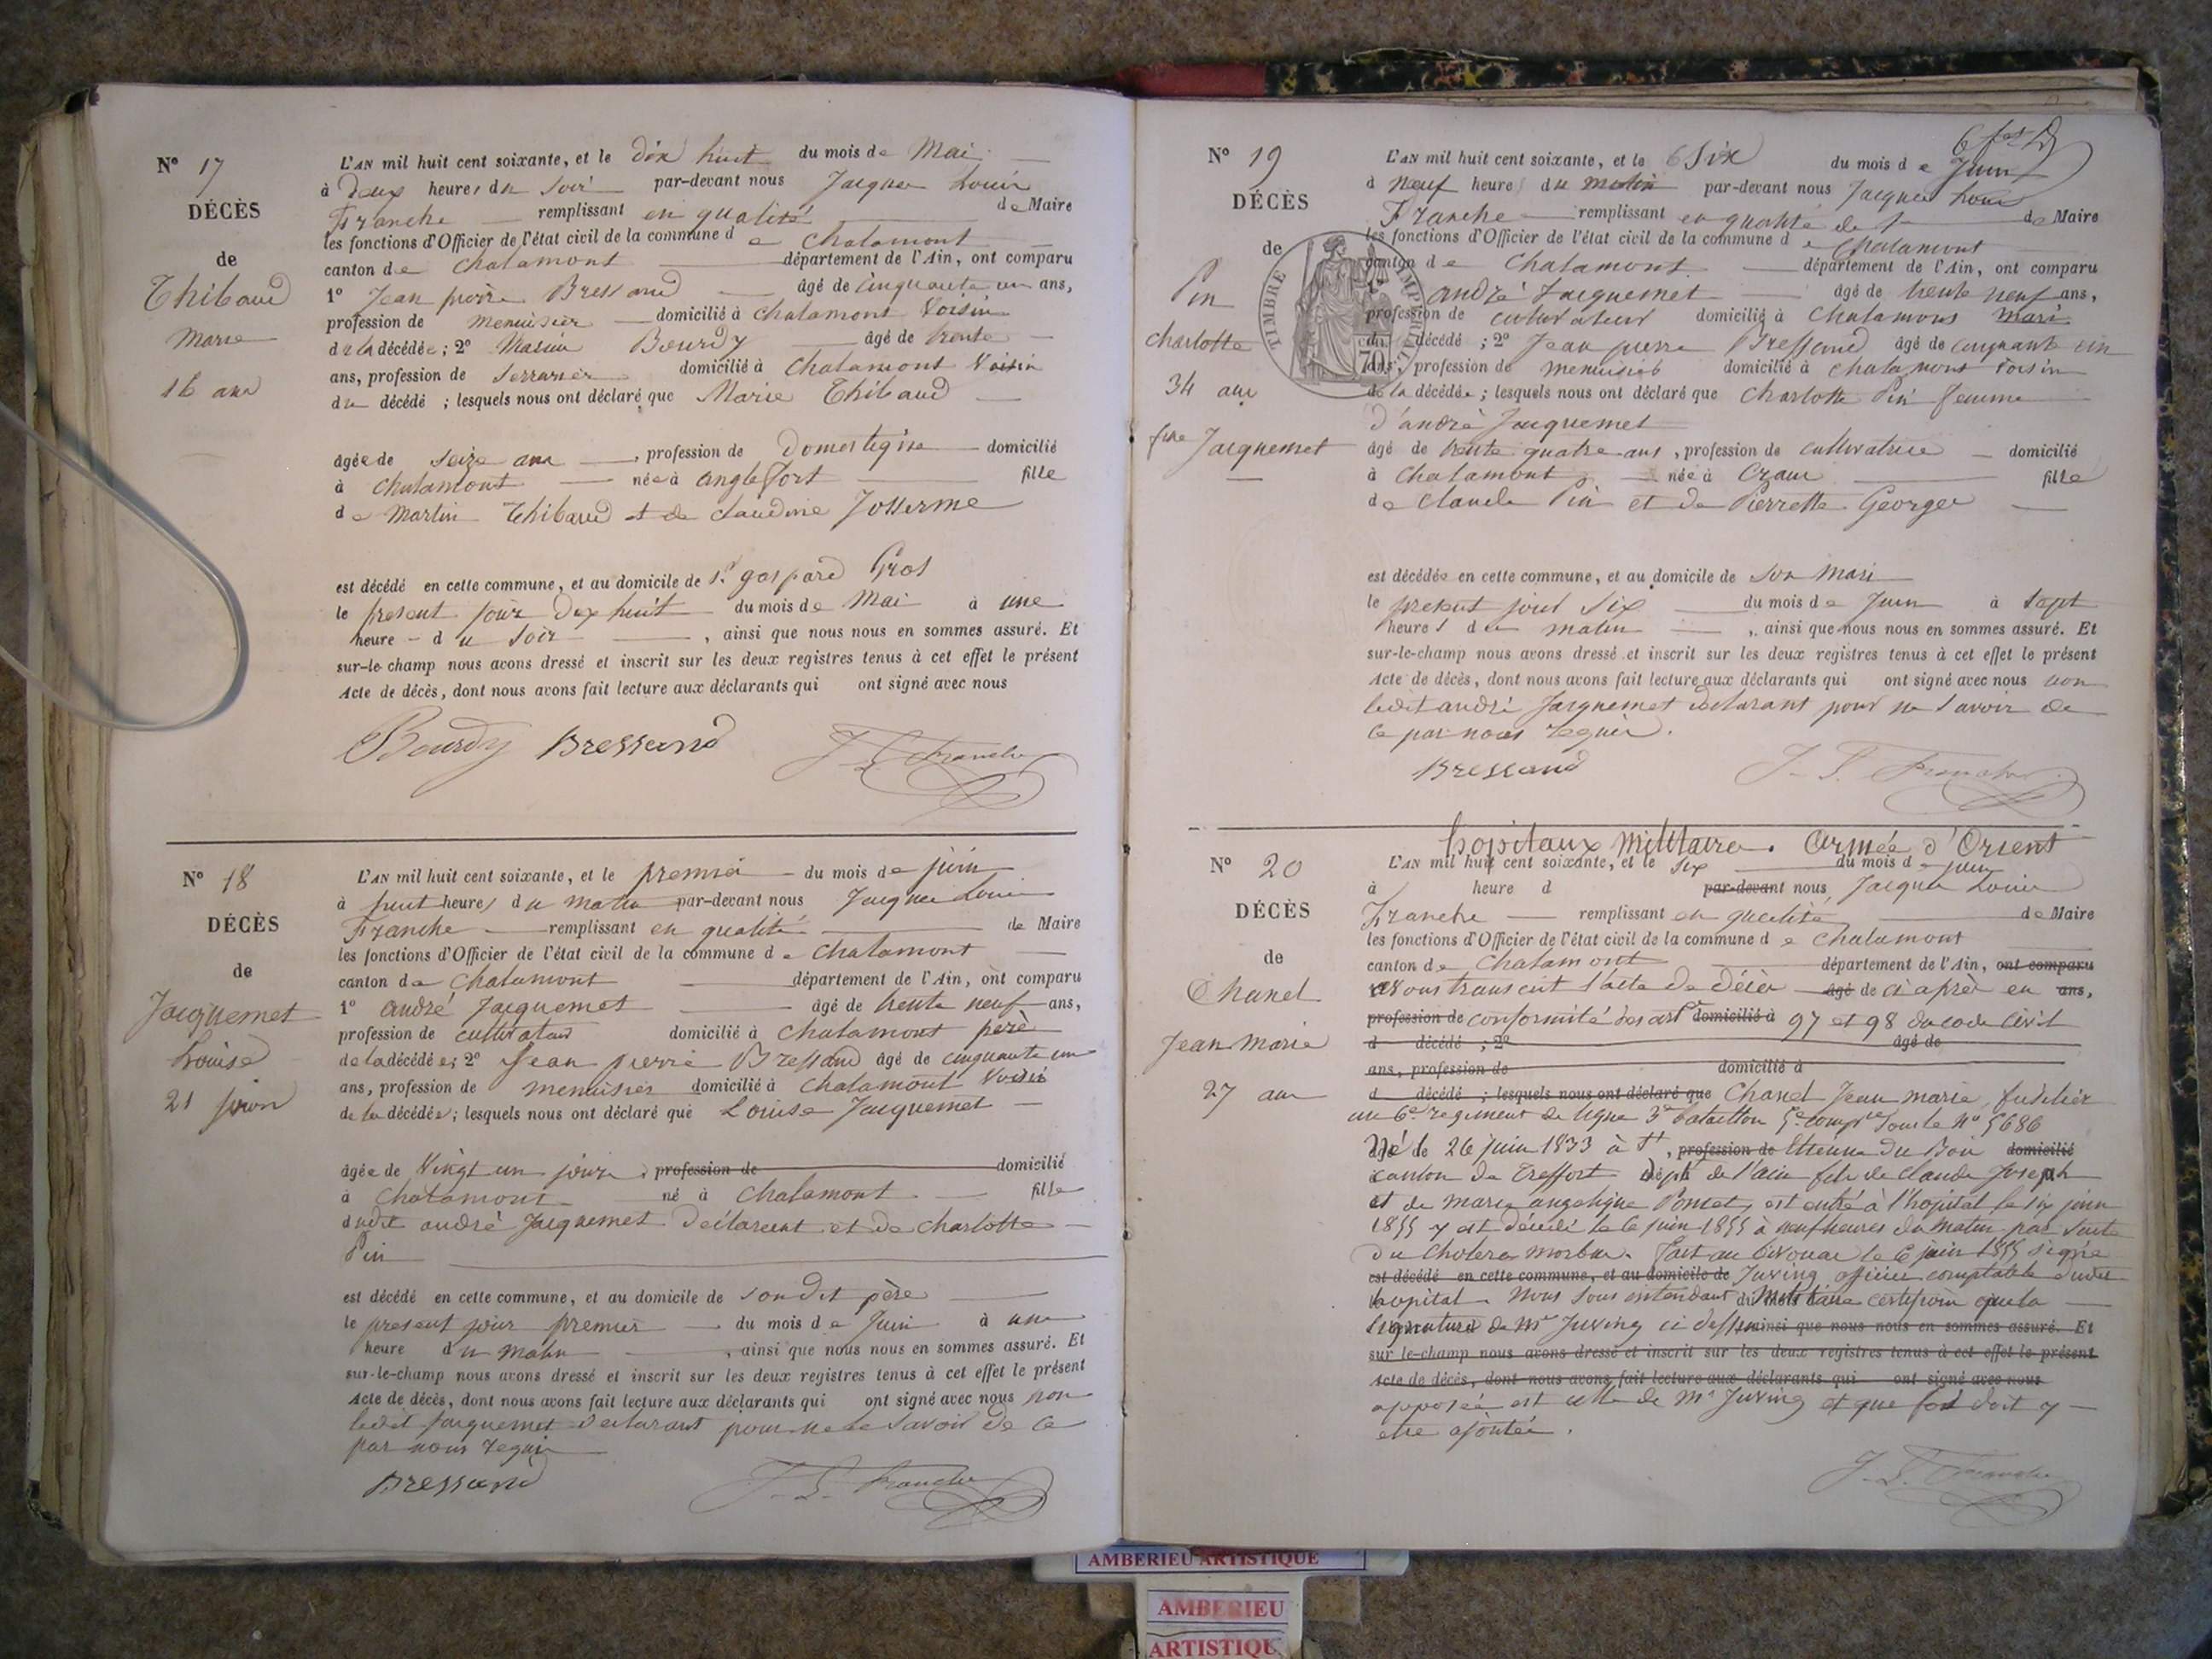 N° 17
DÉCÈS
de
Thibaud
Marie
16 ans
L'AN mil huit cent soixante, et le dix huit du mois de Mai
à deux heures du Soir par-devant nous Jacques Louis
Franche remplissant en qualité de Maire
les fonctions d'Officier de l'état civil de la commune de Chalamont
canton de Chalamont département de l'Ain, ont comparu
1° Jean pierre Bressand âgé de Cinquante un ans,
profession de menuisier domicilié à Chalamont Voisin
de la décédée; 2° Bourdy âgé de trente
ans, profession de Serrurier domicilié à Chalamont Voisin
du décédé ; lesquels nous ont déclaré que Marie Thibaud
âgée de seize ans, profession de Domestique domicilié
à Chalamont née à anglefort fille
de Martin Thibaud et de Claudine Josserme
est décédé en cette commune, et au domicile de Sr gaspard Gros
le présent jour Dix huit du mois de Mai à une
heure du Soir, ainsi que nous nous en sommes assuré. Et
sur-le champ nous avons dressé et inscrit sur les deux registres tenus à cet effet le présent
Acte de décès, dont nous avons fait lecture aux déclarants qui ont signé avec nous
Bourdy Bressand J. L. Franche
N° 18
DÉCÈS
de
Jacquemet
Louise
21 jours
L'AN mil huit cent soixante, et le premier du mois de juin
à huit heures du matin par-devant nous Jacques Louis
Franche remplissant en qualité de Maire
les fonctions d'Officier de l'état civil de la commune de Chalamont
canton de Chalamont département de l'Ain, ont comparu
1° andré Jacquemet âgé de trente neuf ans,
profession de cultivateur domicilié à Chalamont père
de la décédée; 2° Jean pierre Bressand âgé de cinquante un
ans, profession de menuisier domicilié à Chalamont Voisin
de la décédée; lesquels nous ont déclaré que Louise Jacquemet
âgée de Vingt un jours, profession de domicilié
à Chalamont né à Chalamont fille
dudit andré Jacquemet Déclarant et de Charlotte
Pin
est décédé en cette commune, et au domicile de Son dit père
le présent jour premier du mois de Juin à une
heure du matin, ainsi que nous nous en sommes assuré. Et
sur-le-champ nous avons dressé et inscrit sur les deux registres tenus à cet effet le présent
Acte de décès, dont nous avons fait lecture aux déclarants qui ont signé avec nous non
ledit Jacquemet Déclarant pour ne le Savoir de ce
par nous requis
Bressand J. L. Franche
N° 19
DÉCÈS
de
Pin
Charlotte
34 ans
fme Jacquemet
TIMBRE IMPERIAL
70
L'AN mil huit cent soixante, et le 6 Six du mois de Juin
à neuf heures du matin par-devant nous Jacques Louis
Franche remplissant en qualité de Maire
les fonctions d'Officier de l'état civil de la commune de Chalamont
canton de Chalamont département de l'Ain, ont comparu
1° andré Jacquemet âgé de trente neuf ans,
profession de cultivateur domicilié à Chalamont mari
du décédé ; 2° Jean pierre Bressand âgé de cinquante un
ans, profession de menuisier domicilié à Chalamont Voisin
de la décédée ; lesquels nous ont déclaré que Charlotte Pin femme
D'andré Jacquemet
âgé de trente quatre ans, profession de cultivatrice domicilié
à Chalamont née à Crans fille
de Claude Pin et de Pierrette George
est décédée en cette commune, et au domicile de Son Mari
le présent jour Six du mois de Juin à Sept
heures du matin, ainsi que nous nous en sommes assuré. Et
sur-le-champ nous avons dressé et inscrit sur les deux registres tenus à cet effet le présent
Acte de décès, dont nous avons fait lecture aux déclarants qui ont signé avec nous non
ledit andré Jacquemet déclarant pour ne Savoir de
ce par nous requis.
Bressand J. L. Franche
N° 20
DÉCÈS
de
Chanel
Jean Marie
27 ans
hopitaux Militaire. Armée d'Orient
L'AN mil huit cent soixante, et le Six du mois de juin
à heure d par-devant nous Jacques Louis
Franche remplissant en qualité de Maire
les fonctions d'Officier de l'état civil de la commune de Chalamont
canton de Chalamont département de l'Ain, ont comparu
avons transcrit l'acte de décès âgé de ci après en ans,
profession de conformité des art domicilié à 97 et 98 du code Civil
d décédé ; 2° âgé de
ans, profession de domicilié à
d décédé ; lesquels nous ont déclaré que Chanel Jean marie, fusilier
au 6e regiment de ligne 3e bataillon 5e compie Sous le N° 5686
Né le 26 juin 1833 à St, profession de Etienne du Bois domicilié
canton de Treffort dépt de l'ain fils de Claude Joseph
et de marie angelique Poncet, est entré à l'hopital le six juin
1855 y est décédé le 6 juin 1855 à neuf heures du matin par Suite
du Cholera morbus. fait au bivouac le 6 juin 1855 signé
est décédé en cette commune, et au domicile de Juving officier comptable dudit
hopital. Nous Sous intendant du mois Militaire certifions que la
Signature de Mr Juving ci dessus ainsi que nous nous en sommes assuré. Et
sur le-champ nous avons dressé et inscrit sur les deux registres tenus à cet effet le présent
Acte de décès, dont nous avons fait lecture aux déclarants qui ont signé avec nous
apposée est celle de Mr Juving et que foi doit y
etre ajoutée.
J. L. Franche
AMBERIEU ARTISTIQUE
AMBERIEU
ARTISTIQU